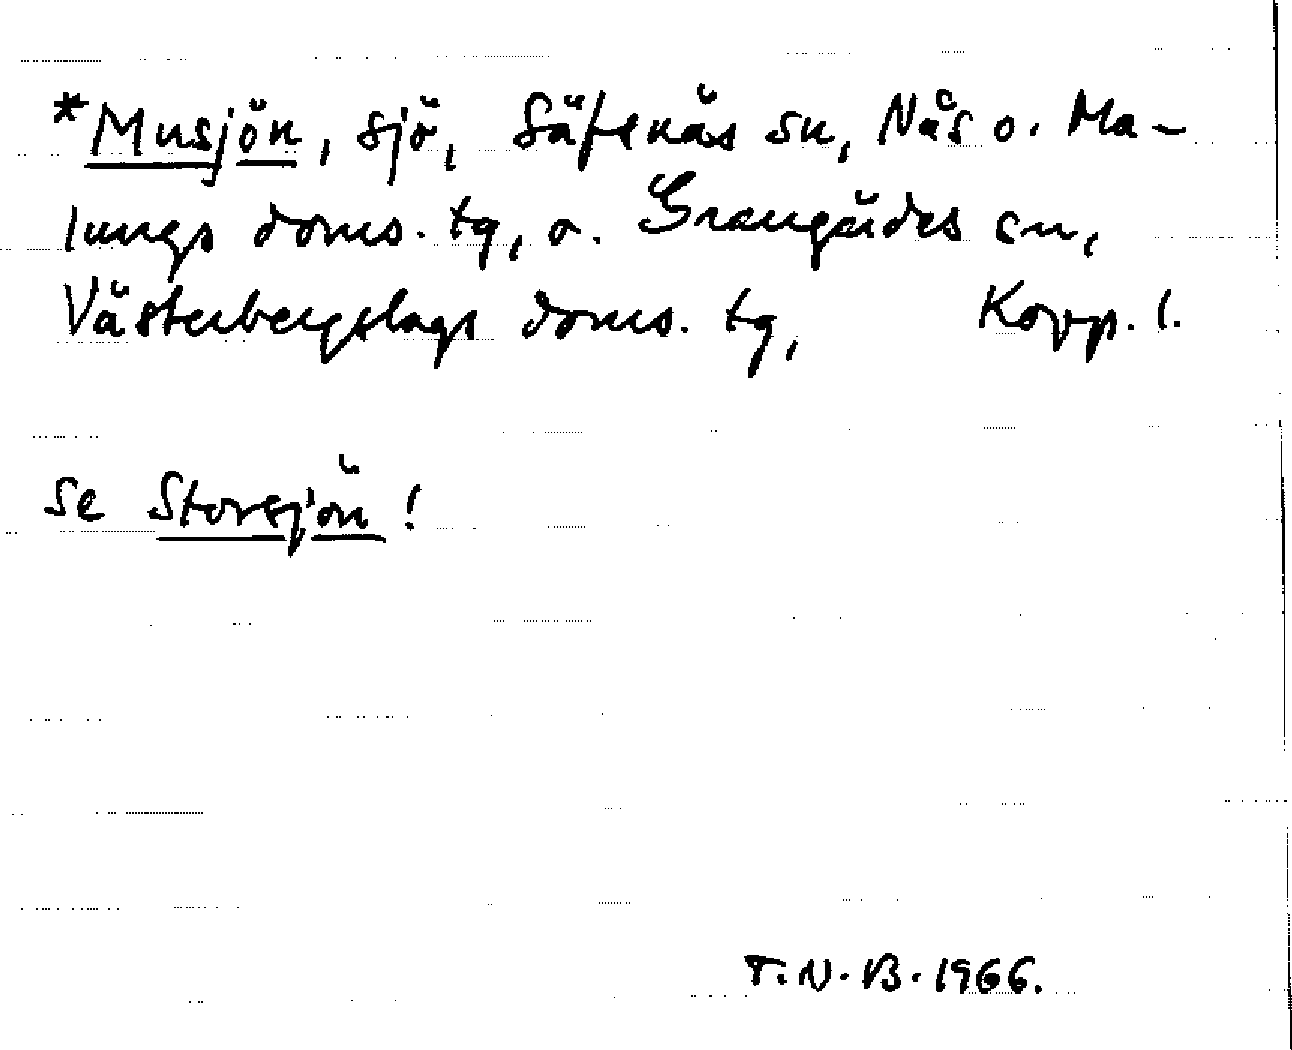 *Musjön, sjö, Säfsnäs sn, Nås o. Ma-
lungs doms. tg, o. Grangärdes sn,
Västerbergslags doms. tg, Kopp. l.
Se Storsjön!
T.N.B. 1966.